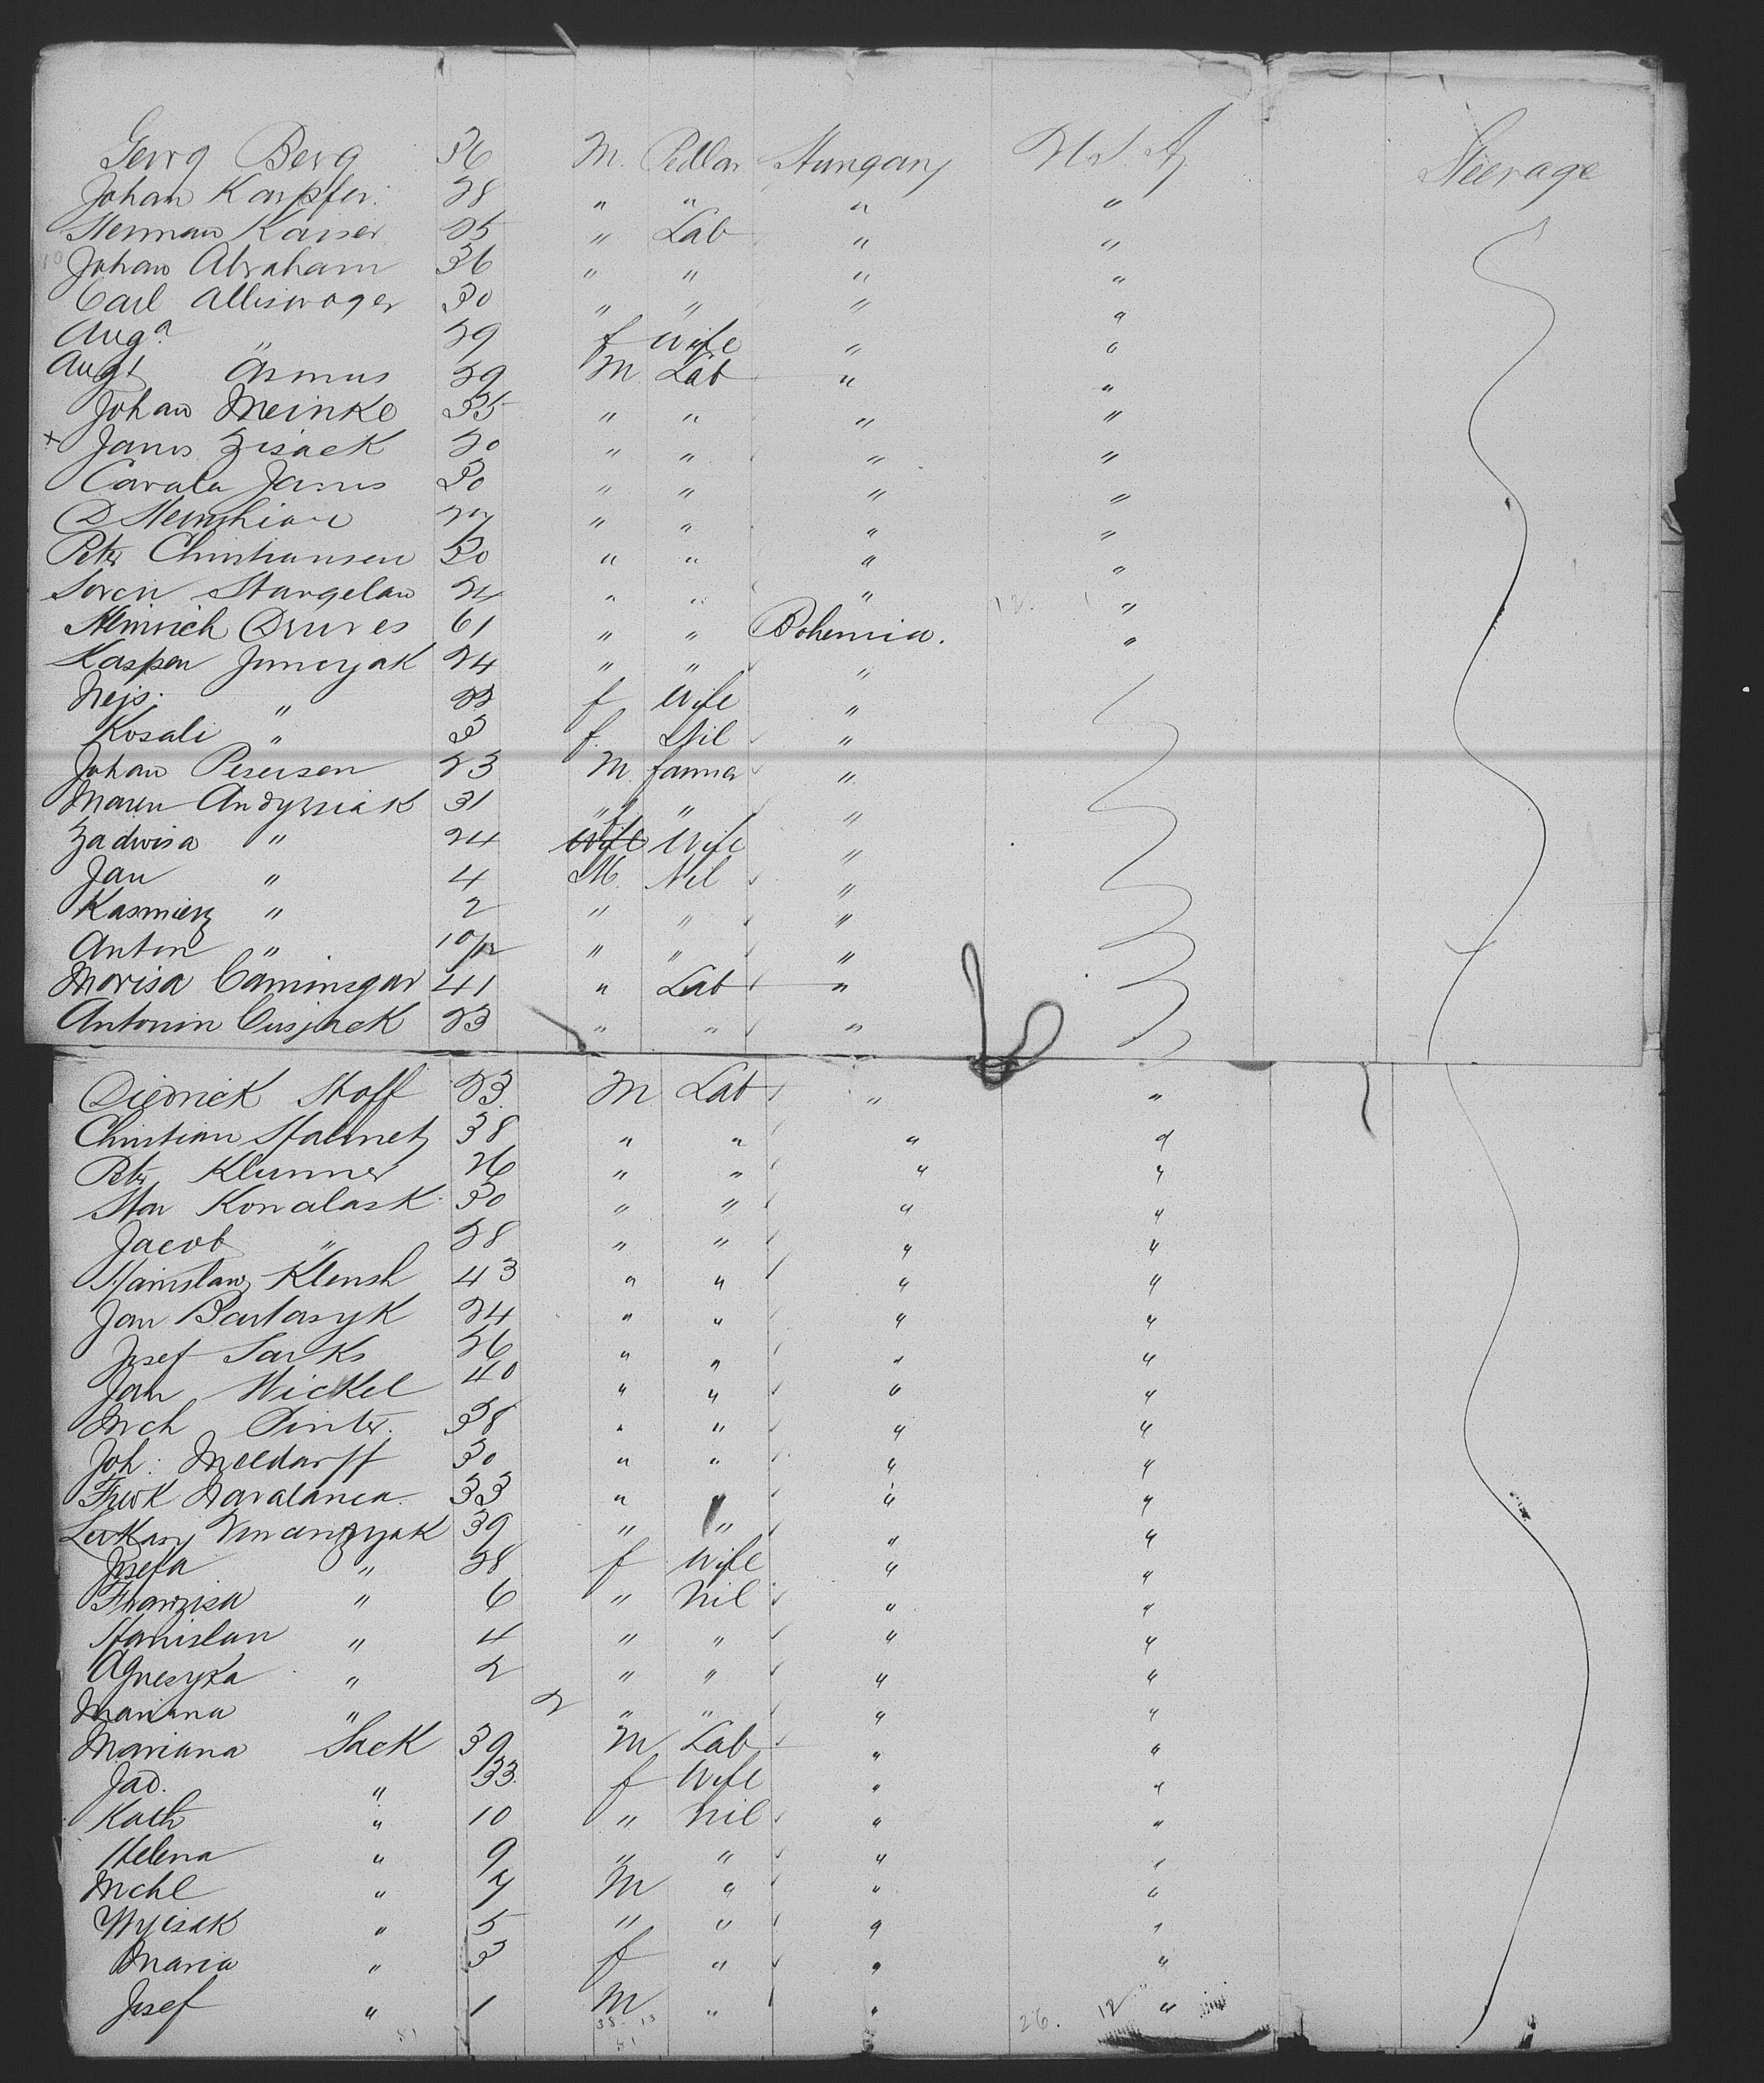 Georg Berg 36 M. Pedlar Hungary U.S.A. Steerage
Johan Karpfer. 28 " " " "
Herman Kaiser 25 " Lab " "
Johan Abraham 36 " " " "
Carl Alliswager 30 " " " "
Auga " 29 f Wife " "
Augt Asmus 29 M Lab " "
Johan Meinke 35 " " " "
x Janos Zisack 20 " " " "
Carala Janos 30 " " " "
D 27 " " " "
Peter Christiansen 30 " " " "
Soren Stargelau " " " "
Heinrich Druves 61 " " Bohemia. "
Kasper Jumczak 24 " " "
Nejs. " 22 f Wife "
Rosali " 3 f. Nil "
Johan Petersen 23 M farmer "
Maren Andyrziak 31 " " "
Hadwisa " 24 f Wife "
Jan " 4 M. Nil "
Kasmierz " 2 " " "
Anton " 10/12 " " "
Morisa Caminsgar 41 " Lab "
Antonin Cusjack 23 " " "
Diedrick Hoff 23. M Lab " "
Christian Stalmetz 38 " " " "
Peter Klunner 26 " " " "
Stan Konalask 30 " " " "
Jacob " 28 " " " "
Stanislaw Klensh 43 " " " "
Jan Bartasyk 24 " " " "
Josef Sarks 26 " " " "
Jan Hickel 40 " " " "
Mch Pinter. 38 " " " "
Joh: Meldarff 30 " " " "
Fredk Navalanea. 33 " " " "
Luckasz 39 " " " "
Josefa " 28 f Wife " "
Franziska " 6 " Nil " "
Stanislaw " 4 " " " "
Agnesyka " 2 " " " "
Mariana " 2 " " " "
Mariana Sack 39 M Lab " "
Jad. " 33. f Wife " "
Kath " 10 " Nil " "
Helena " 9 " " " "
Mchl " 7 M " " "
Wycisak " 5 " " " "
Maria " 3 f " " "
Josef " 1 M " " "
51 38 13 26. 12
51